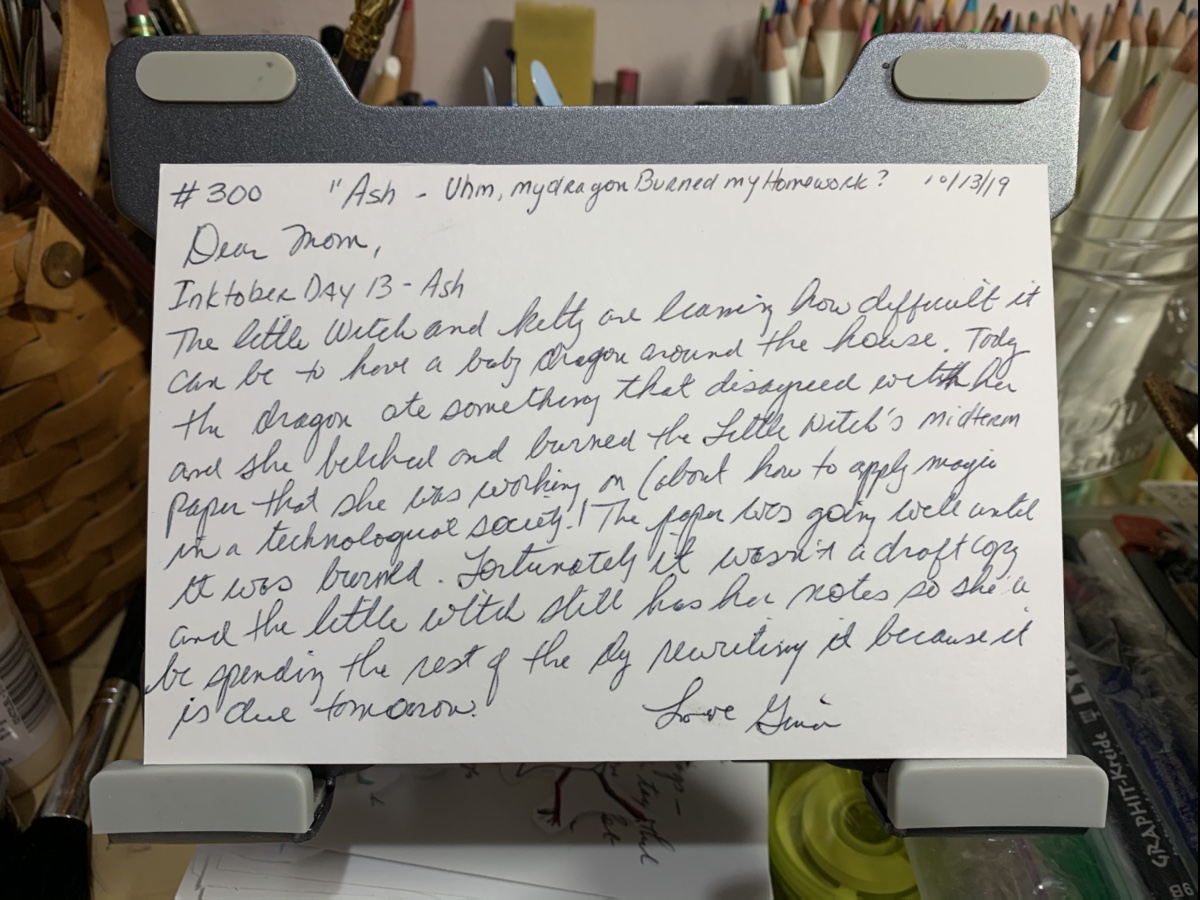 # 300 "Ash - Uhm, my dragon Burned my Homework? 10/13/19
Dear Mom,
Inktober DAY 13 - Ash
The little Witch and kitty are learning how difficult it
can be to have a baby dragon around the house. Today
the dragon ate something that disagreed with her
and she belched and burned the Little Witch's midterm
paper that she was working on (about how to apply magic
in a technological society! The paper was going well until
it was burned. Fortunately it wasn't a draft copy
and the little witch still has her notes so she'll
be spending the rest of the dy rewriting it because it
is due tomorrow.
Love Gina
GRAPHIT-Kreide
9B